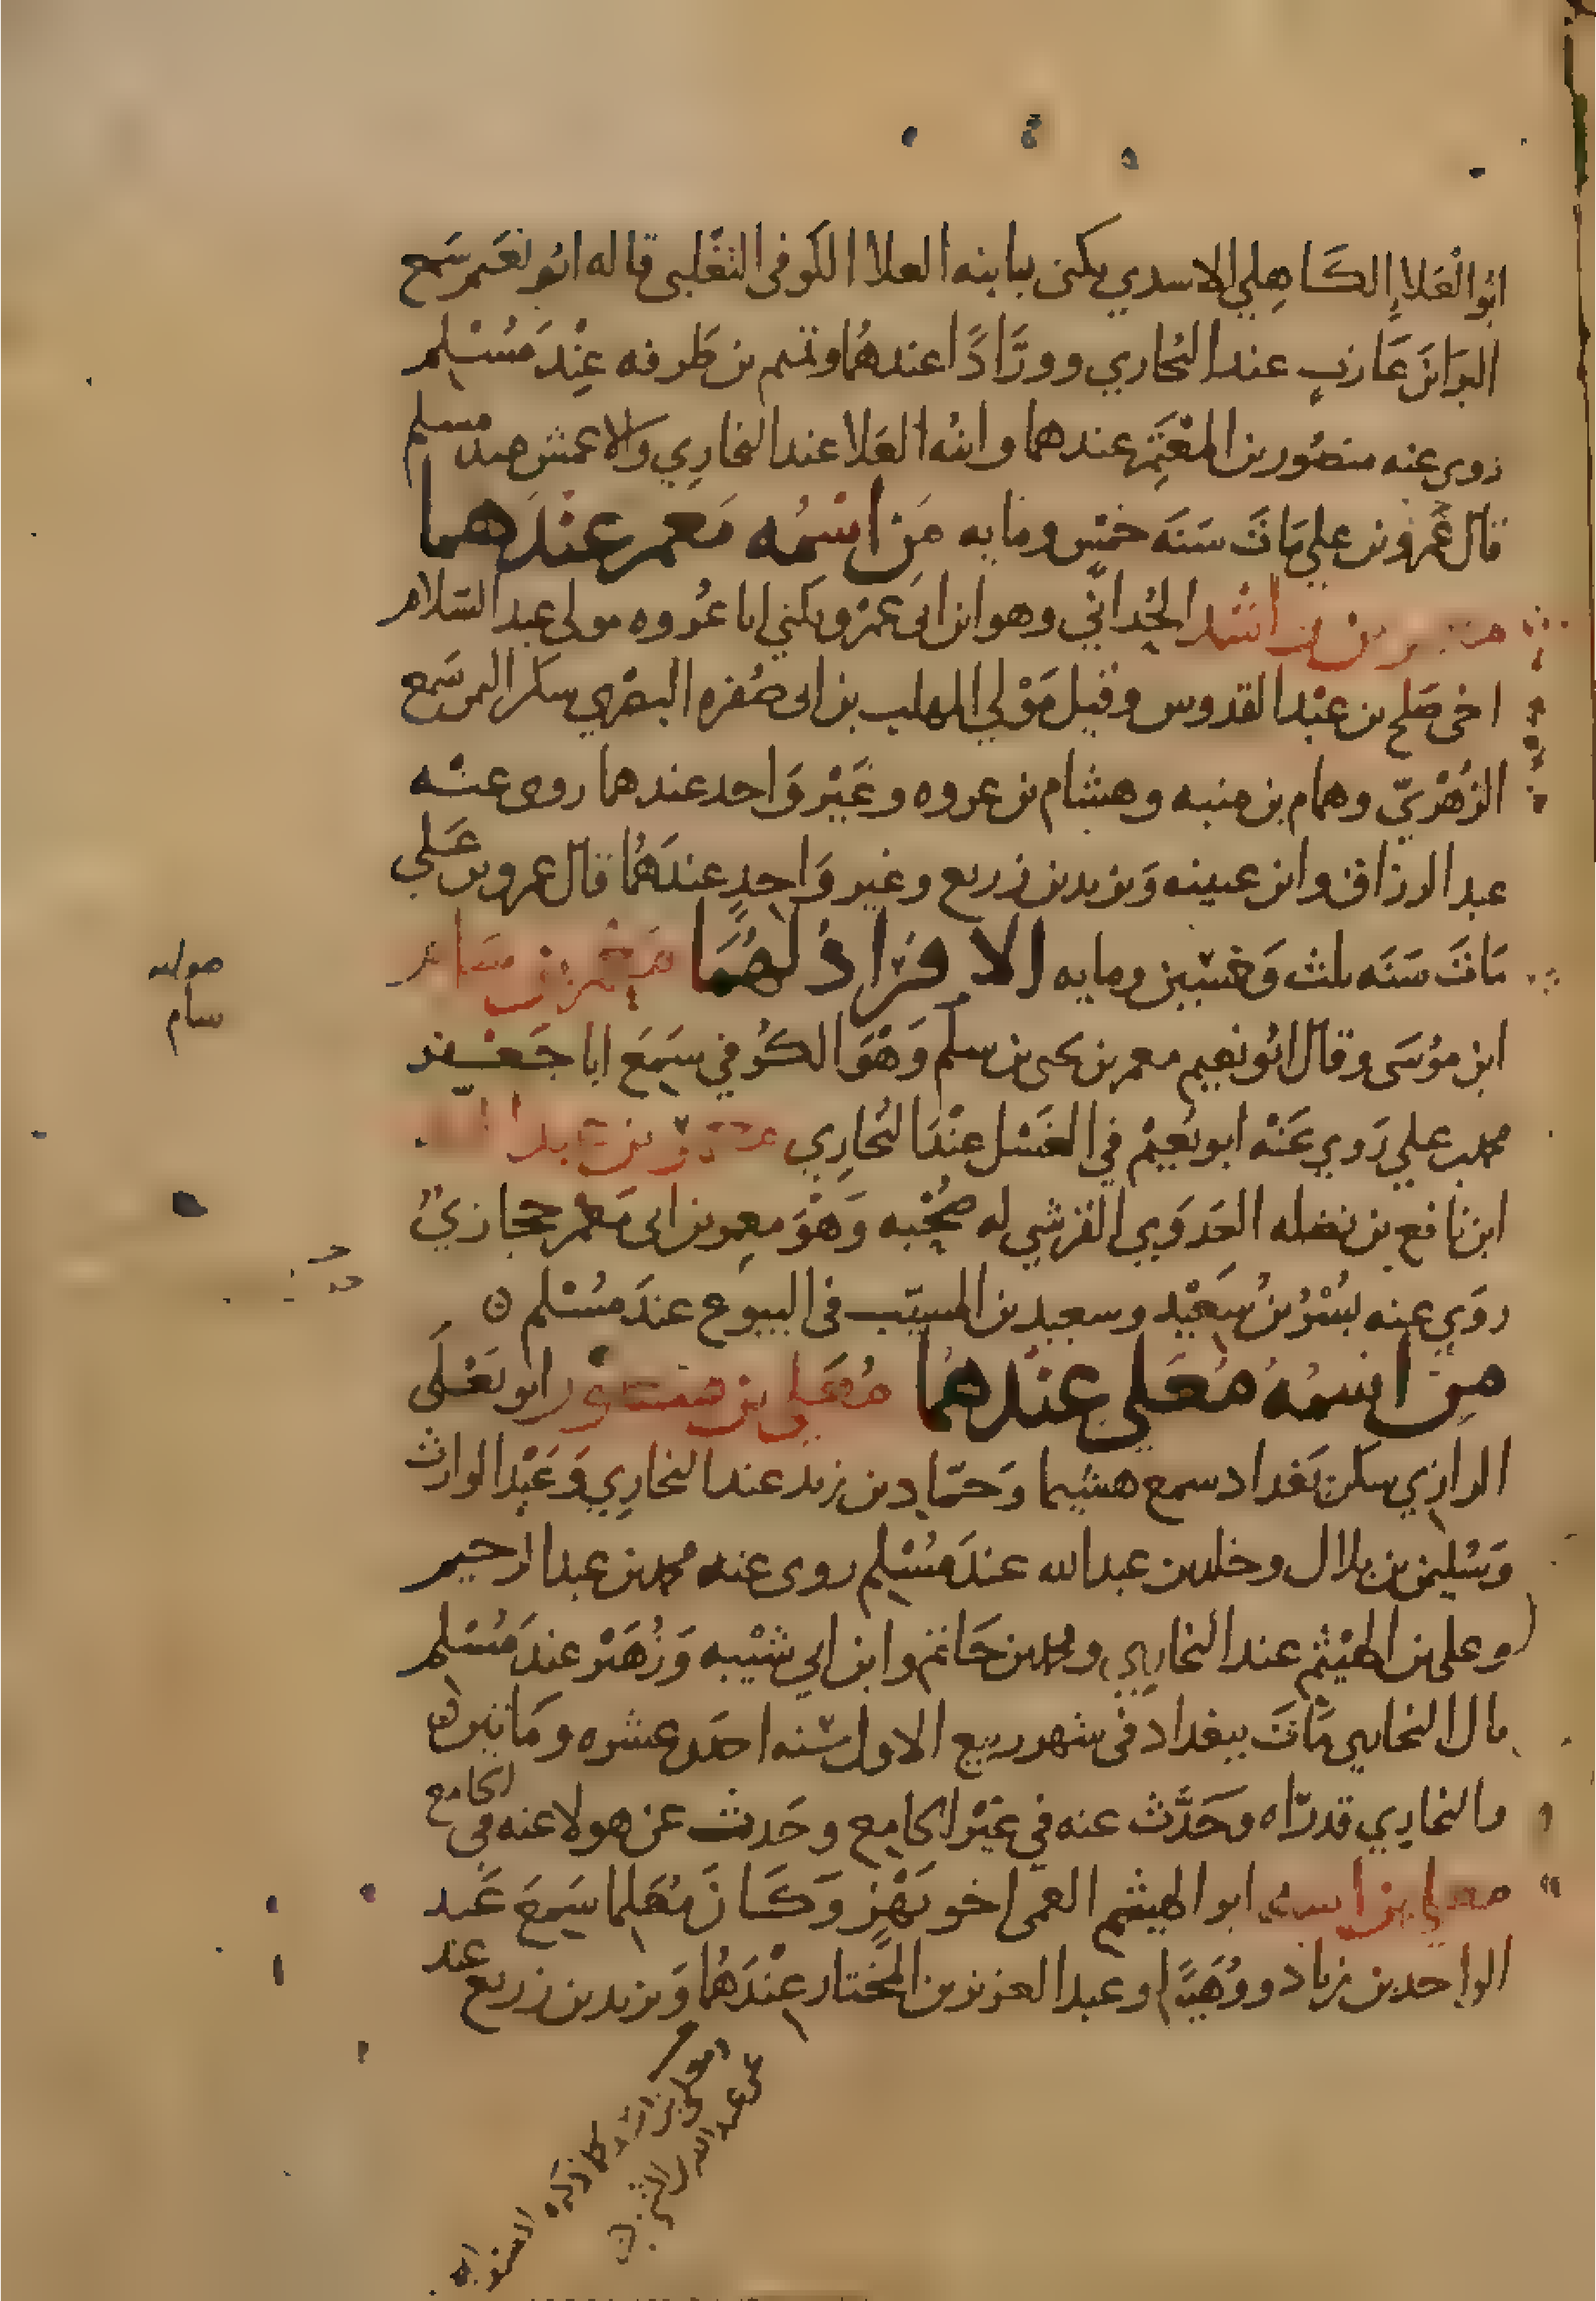 ابُو العَلاءِ الكَاهِلي الاسدي يكنى بابنه العلا الكوفى التغَلبى قاله ابُو نعَيم سَمع
البرَا بنَ عَازبٍ عند البُخاري وورَّادًا عندهُما وتميم بن طَرفه عِنْدَ مسُسْلِم
روى عنه منصُور بن المعْتَمِر عندهما وابنُه العَلا عند البخارِي والاعمش عند مسلم
قال عَمرو بن علي مَاتَ سَنَه خمسْ ومايه مَن اسْمُه مَعمر عنْدَهما
معمر بن راشد الحُدانّي وهو ابن ابى عَمْرو يكني ابا عُروه مولى عبد السَلام
اخى صَلح بن عَبْد القدوس وقيل مَوْلي المهلب بن ابى صُفره البصْري سكن اليمن سَمع
الزُهْريّ وهمام بن منبه وهشام بن عروه وغَيْر وَاحد عندهما روى عنْه
عبد الرزاق وابن عيينه وَيزيد بن زريع وغير وَاحدٍ عندَهُما قال عمرو بن عَلي
مَاتَ سَنَه ثلث وَخمسْين ومايه الافرَادُ لَهُمَا معمر بن سام
ابن موُسَى وقال ابُو نعيم معمر بن يحيى بن سلم وَهْوَ الكُوفي سَمِعَ ابا جَعفَر
محمد بن علي رَوي عَنْه ابو نُعيمْ في الغَسْل عنْدَ البُخارِي معمر بن عبد الله
ابن نَافع بن نضله العَدَوَي القرشي له صُحْبه وَهْوَ معمر بن ابى مَعْمر حجازيُ
روَي عنه بُسْرُ بنُ سَعيْد وسعيد بن المسيّب فى البيوع عندَ مسُسْلم ه
مِن اسمُهُ مُعَلى عنْدَهُمَا مُعَلى بن منصُور ابو يَعْلَى
الرازي سكن بَغداد سمع هشيما وَحَمّاد بن زيد عند البخارِي وَعَبْد الوارث
وَسُليمن بن بلال وخلد بن عبد الله عندَ مسُسْلم روى عنه محمد بن عبد الرحيم
وعلى بن الهيْثم عند البخاري ومحمد بن حَاتم وابن ابي شيْبه وَزُهَيْر عندَ مُسْلم
قال البخاري مَاتَ ببغدادَ فى شهر ربيع الاول سنْه احدَى عشره ومَايتين
والبخاري قد رَاه وحَدَّث عنه في غيْر الجامع وحَدث عن هولا عنه في الجامع
معلى بن اسد ابو الهيثم العمى اخو بَهْزٍ وَكَانَ مُعَلما سَمِعَ عَبد
الواحد بن زياد ووُهَيبًا وعبد العزيز بن المختار عنْدَهُما وَيزيد بن زريع عند
صوابه
سام